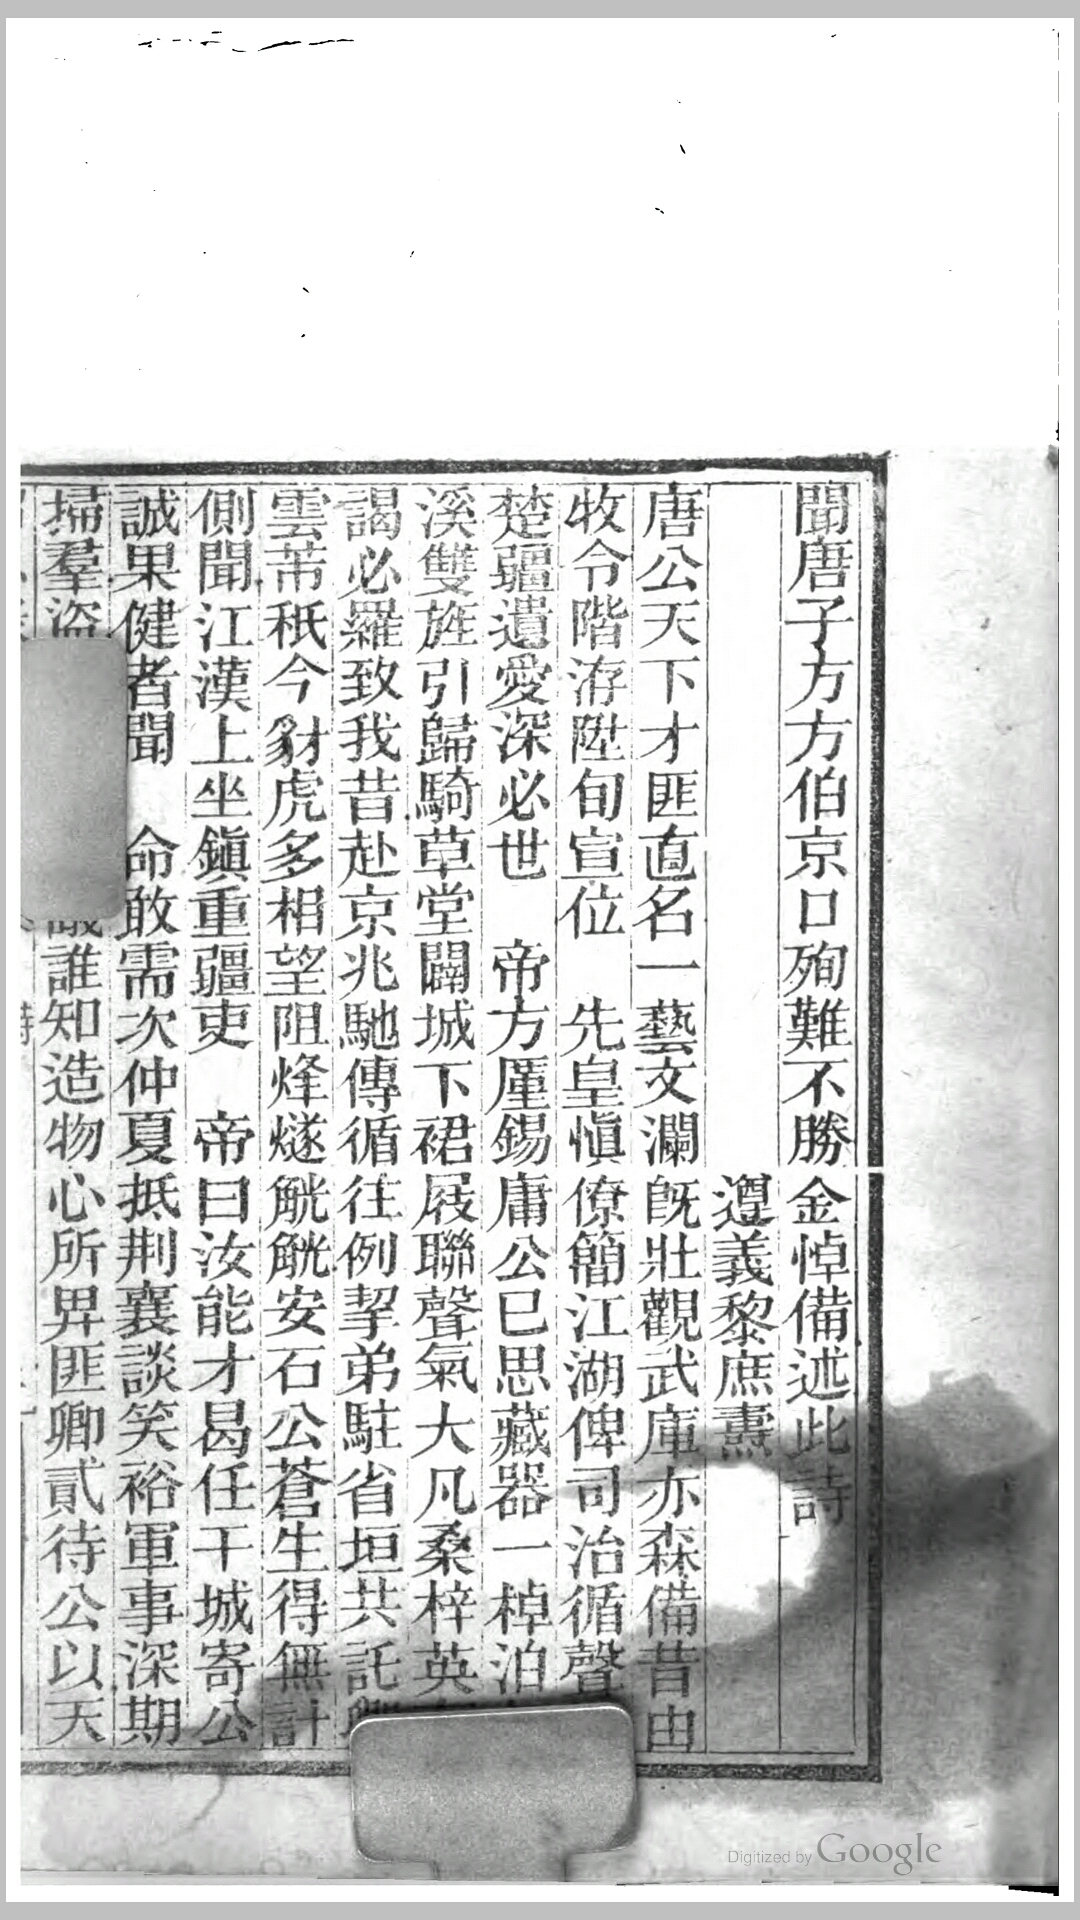 聞唐子方方伯京口殉難不勝金悼備述此詩
遵義黎庶燾
唐公天下才匪直名一藝文瀾旣壯觀武庫亦森備昔由
牧令階洊陞旬宣位 先皇愼僚簡江湖俾司治循聲
楚疆遺愛深必世 帝方厪錫庸公已思藏器一棹泊
溪雙旌引歸騎草堂闢城下裙屐聯聲氣大凡桑梓英
謁必羅致我昔赴京兆馳傳循往例挈弟駐省垣共託
雲芾秖今豺虎多相望阻烽燧觥觥安石公蒼生得無計
側聞江漢上坐鎭重疆吏 帝曰汝能才曷任干城寄公
誠果健者聞 命敢需次仲夏抵荆襄談笑裕軍事深期
掃羣盜 誰知造物心所畀匪卿貳待公以天
Digitized by Google